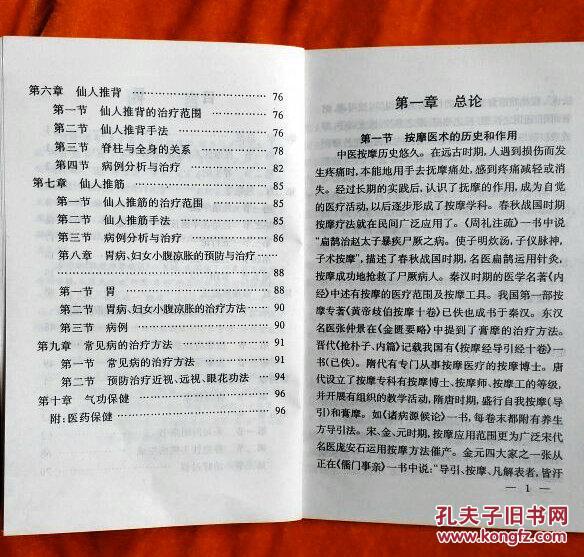 第六章 仙人推背 …………………… 76
第一节 仙人推背的治疗范围 ………… 76
第二节 仙人推背手法 ……………… 76
第三节 脊柱与全身的关系 ………… 78
第四节 病例分析与治疗 …………… 82
第七章 仙人推筋 …………………… 85
第一节 仙人推筋的治疗范围 ………… 85
第二节 仙人推筋手法 ……………… 85
第三节 病例分析与治疗 …………… 86
第八章 胃病、妇女小腹凉胀的预防与治疗……
…………………………………… 88
第一节 胃 ………………………… 88
第二节 胃病、妇女小腹凉胀的治疗方法 … 90
第三节 病例 ……………………… 90
第九章 常见病的治疗方法 …………… 91
第一节 常见病的治疗方法 ………… 91
第二节 预防治疗近视、远视、眼花功法 … 94
第十章 气功保健 …………………… 96
附:医药保健 ……………………… 96
第一章 总论
第一节 按摩医术的历史和作用
中医按摩历史悠久。在远古时期,人遇到损伤而发
生疼痛时,本能地用手去抚摩痛处,感到疼痛减轻或消
失。经过长期的实践后,认识了抚摩的作用,成为自觉
的医疗活动,以后逐步形成了按摩学科。春秋战国时期
按摩疗法就在民间广泛应用了。《周礼注疏》一书中说
“扁鹊治赵太子暴疾尸厥之病。使子明炊汤,子仪脉神,
子术按摩”,描述了春秋战国时期,名医扁鹊运用针灸、
按摩成功地抢救了尸厥病人。秦汉时期的医学名著《内
经》中述有按摩的医疗范围及按摩工具。我国第一部按
摩专著《黄帝歧伯按摩十卷》已佚也成书于秦汉。东汉
名医张仲景在《金匮要略》中提到了膏摩的治疗方法。
晋代《抢朴子、内篇》记载我国有《按摩经导引经十卷》一
书(已佚)。隋代有专门从事按摩医疗的按摩博士。唐
代设立了按摩专科有按摩博士、按摩师、按摩工的等级,
并开展有组织的教学活动,隋唐时期,盛行自我按摩(导
引)和膏摩。如《诸病源候论》一书,每卷末都附有养生
方导引法。宋、金、元时期,按摩应用范围更为广泛宋代
名医庞安石运用按摩方法催产。金元四大家之一张从
正在《儒门事亲》一书中说:“导引、按摩、凡解表者,皆汗
— 1 —
孔夫子旧书网
www.kongfz.com